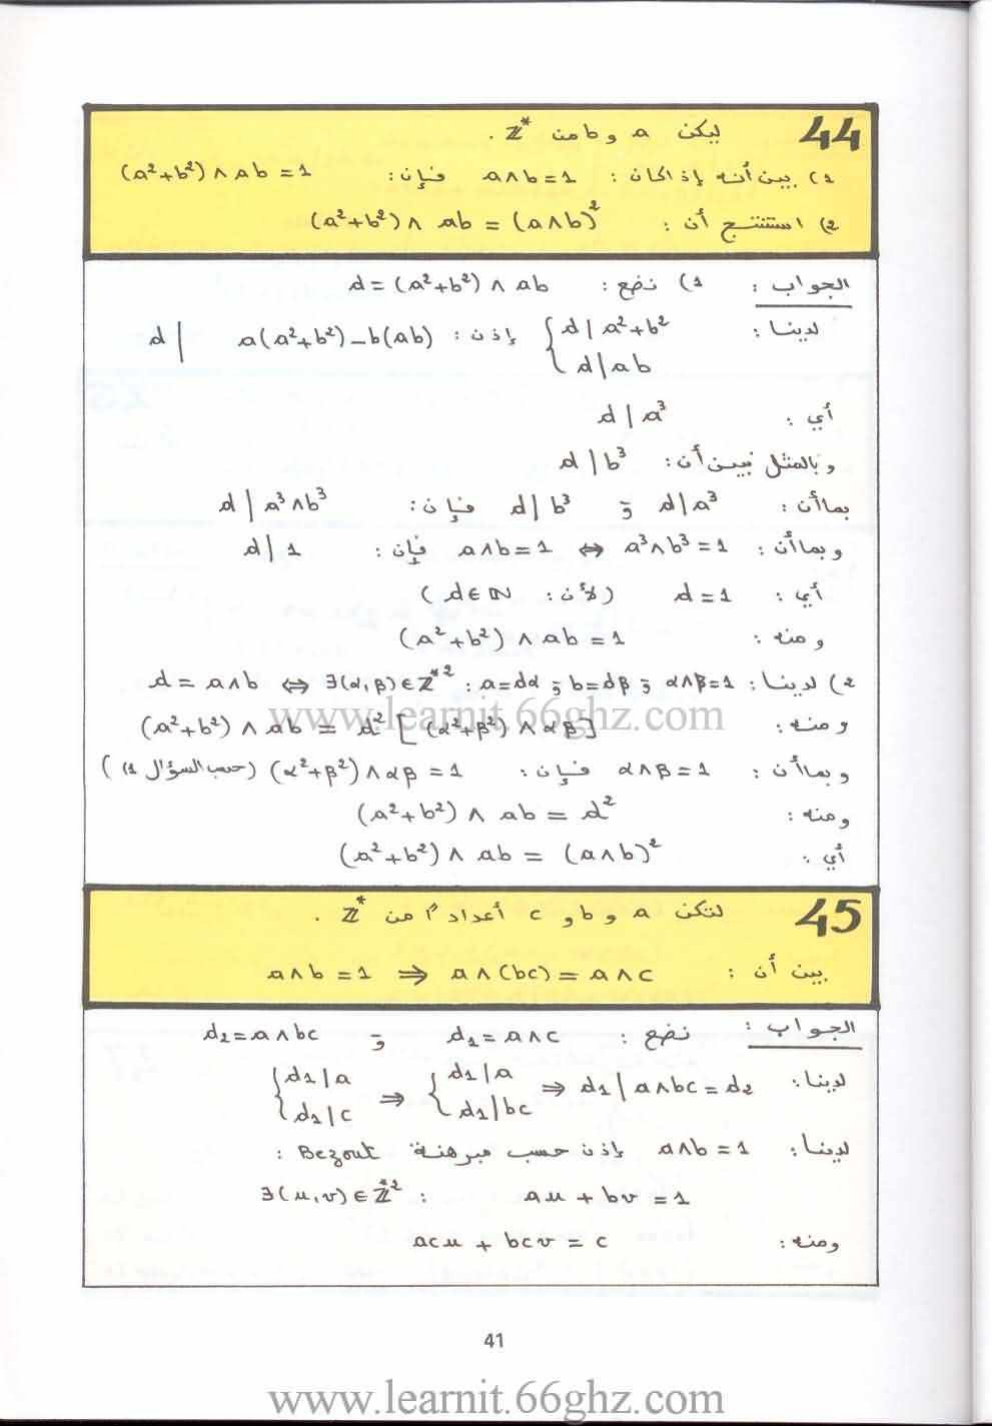 44 ليكن a و b من ℤ* .
1) بين أنه إذا كان : a∧b=1 فإن: (a²+b²)∧ab=1
2) استنتج أن : (a²+b²)∧ ab = (a∧b)²
الجواب : 1) نضع : d= (a²+b²) ∧ ab
لدينا : { d | a²+b² ; d | ab إذن : d | a(a²+b²)-b(ab)
أي : d | a³
وبالمثل نبين أن : d | b³
بما أن : d | a³ و d | b³ فإن : d | a³∧b³
وبما أن : a³∧b³=1 ⇔ a∧b=1 فإن : d | 1
أي : d=1 (لأن : d∈ℕ)
ومنه : (a²+b²) ∧ ab =1
2) لدينا : d= a∧b ⇔ ∃(α,β)∈ℤ*² : a=dα و b=dβ و α∧β=1
www.learnit.66ghz.com
ومنه : (a²+b²) ∧ ab = d² [ (α²+β²) ∧ αβ ]
وبما أن : α∧β=1 فإن : (α²+β²)∧αβ =1 (حسب السؤال 1) )
ومنه : (a²+b²) ∧ ab = d²
أي : (a²+b²) ∧ ab = (a∧b)²
45 لتكن a و b و c أعدادا من ℤ* .
بين أن : a∧b =1 ⇒ a∧(bc)= a∧c
الجواب : نضع : d₁= a∧c و d₂= a∧bc
لدينا : { d₁ | a ; d₁ | c ⇒ { d₁ | a ; d₁ | bc ⇒ d₁ | a∧bc = d₂
لدينا : a∧b =1 إذن حسب مبرهنة Bezout :
∃(u,v)∈ℤ*² : au + bv =1
ومنه : acu + bcv = c
41
www.learnit.66ghz.com